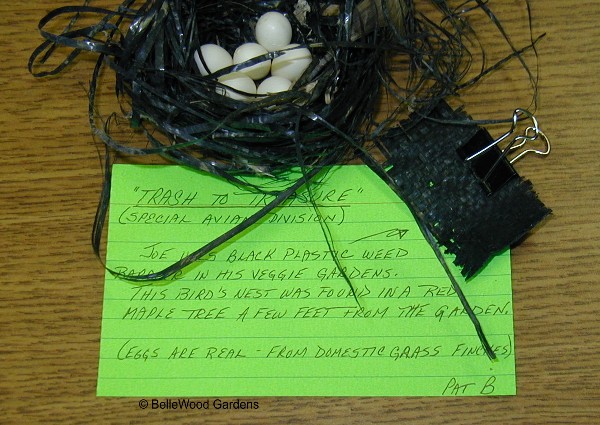 "TRASH TO TREASURE"
(SPECIAL AVIAN DIVISION)
JOE USES BLACK PLASTIC WEED
BARRIER IN HIS VEGGIE GARDENS.
THIS BIRD'S NEST WAS FOUND IN A RED
MAPLE TREE A FEW FEET FROM THE GARDEN.
(EGGS ARE REAL - FROM DOMESTIC GRASS FINCHES)
PAT B
© BelleWood Gardens